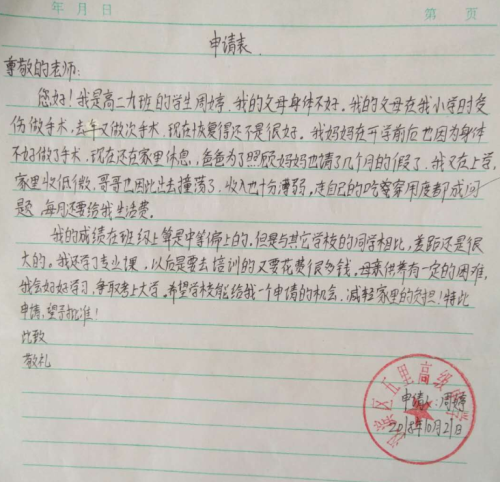 年 月 日 第 页
申请表
尊敬的老师:
您好!我是高二九班的学生周婷,我的父母身体不好。我的父母在我小学时受
伤做手术,去年又做次手术,现在恢复得还不是很好。我妈妈在开学前后也因为身体
不好做了手术,现在还在家里休息,爸爸为了照顾妈妈也请了几个月的假了,我又在上学,
家里收低微,哥哥也因此出去撞荡了,收入也十分薄弱。连自己的吃穿用度都成问
题,每月还要给我生活费。
我的成绩在班级上算是中等偏上的。但是与其它学校的同学相比,差距还是很
大的。我还学了专业课,以后是要去培训的又要花费很多钱。供养有一定的困难,
我会好好学习,争取考上大学。希望学校能给我一个申请的机会,减轻家里的负担!特此
申请,望予批准!
此致
敬礼
区五里高级中学
申请人:周婷
2018年10月21日